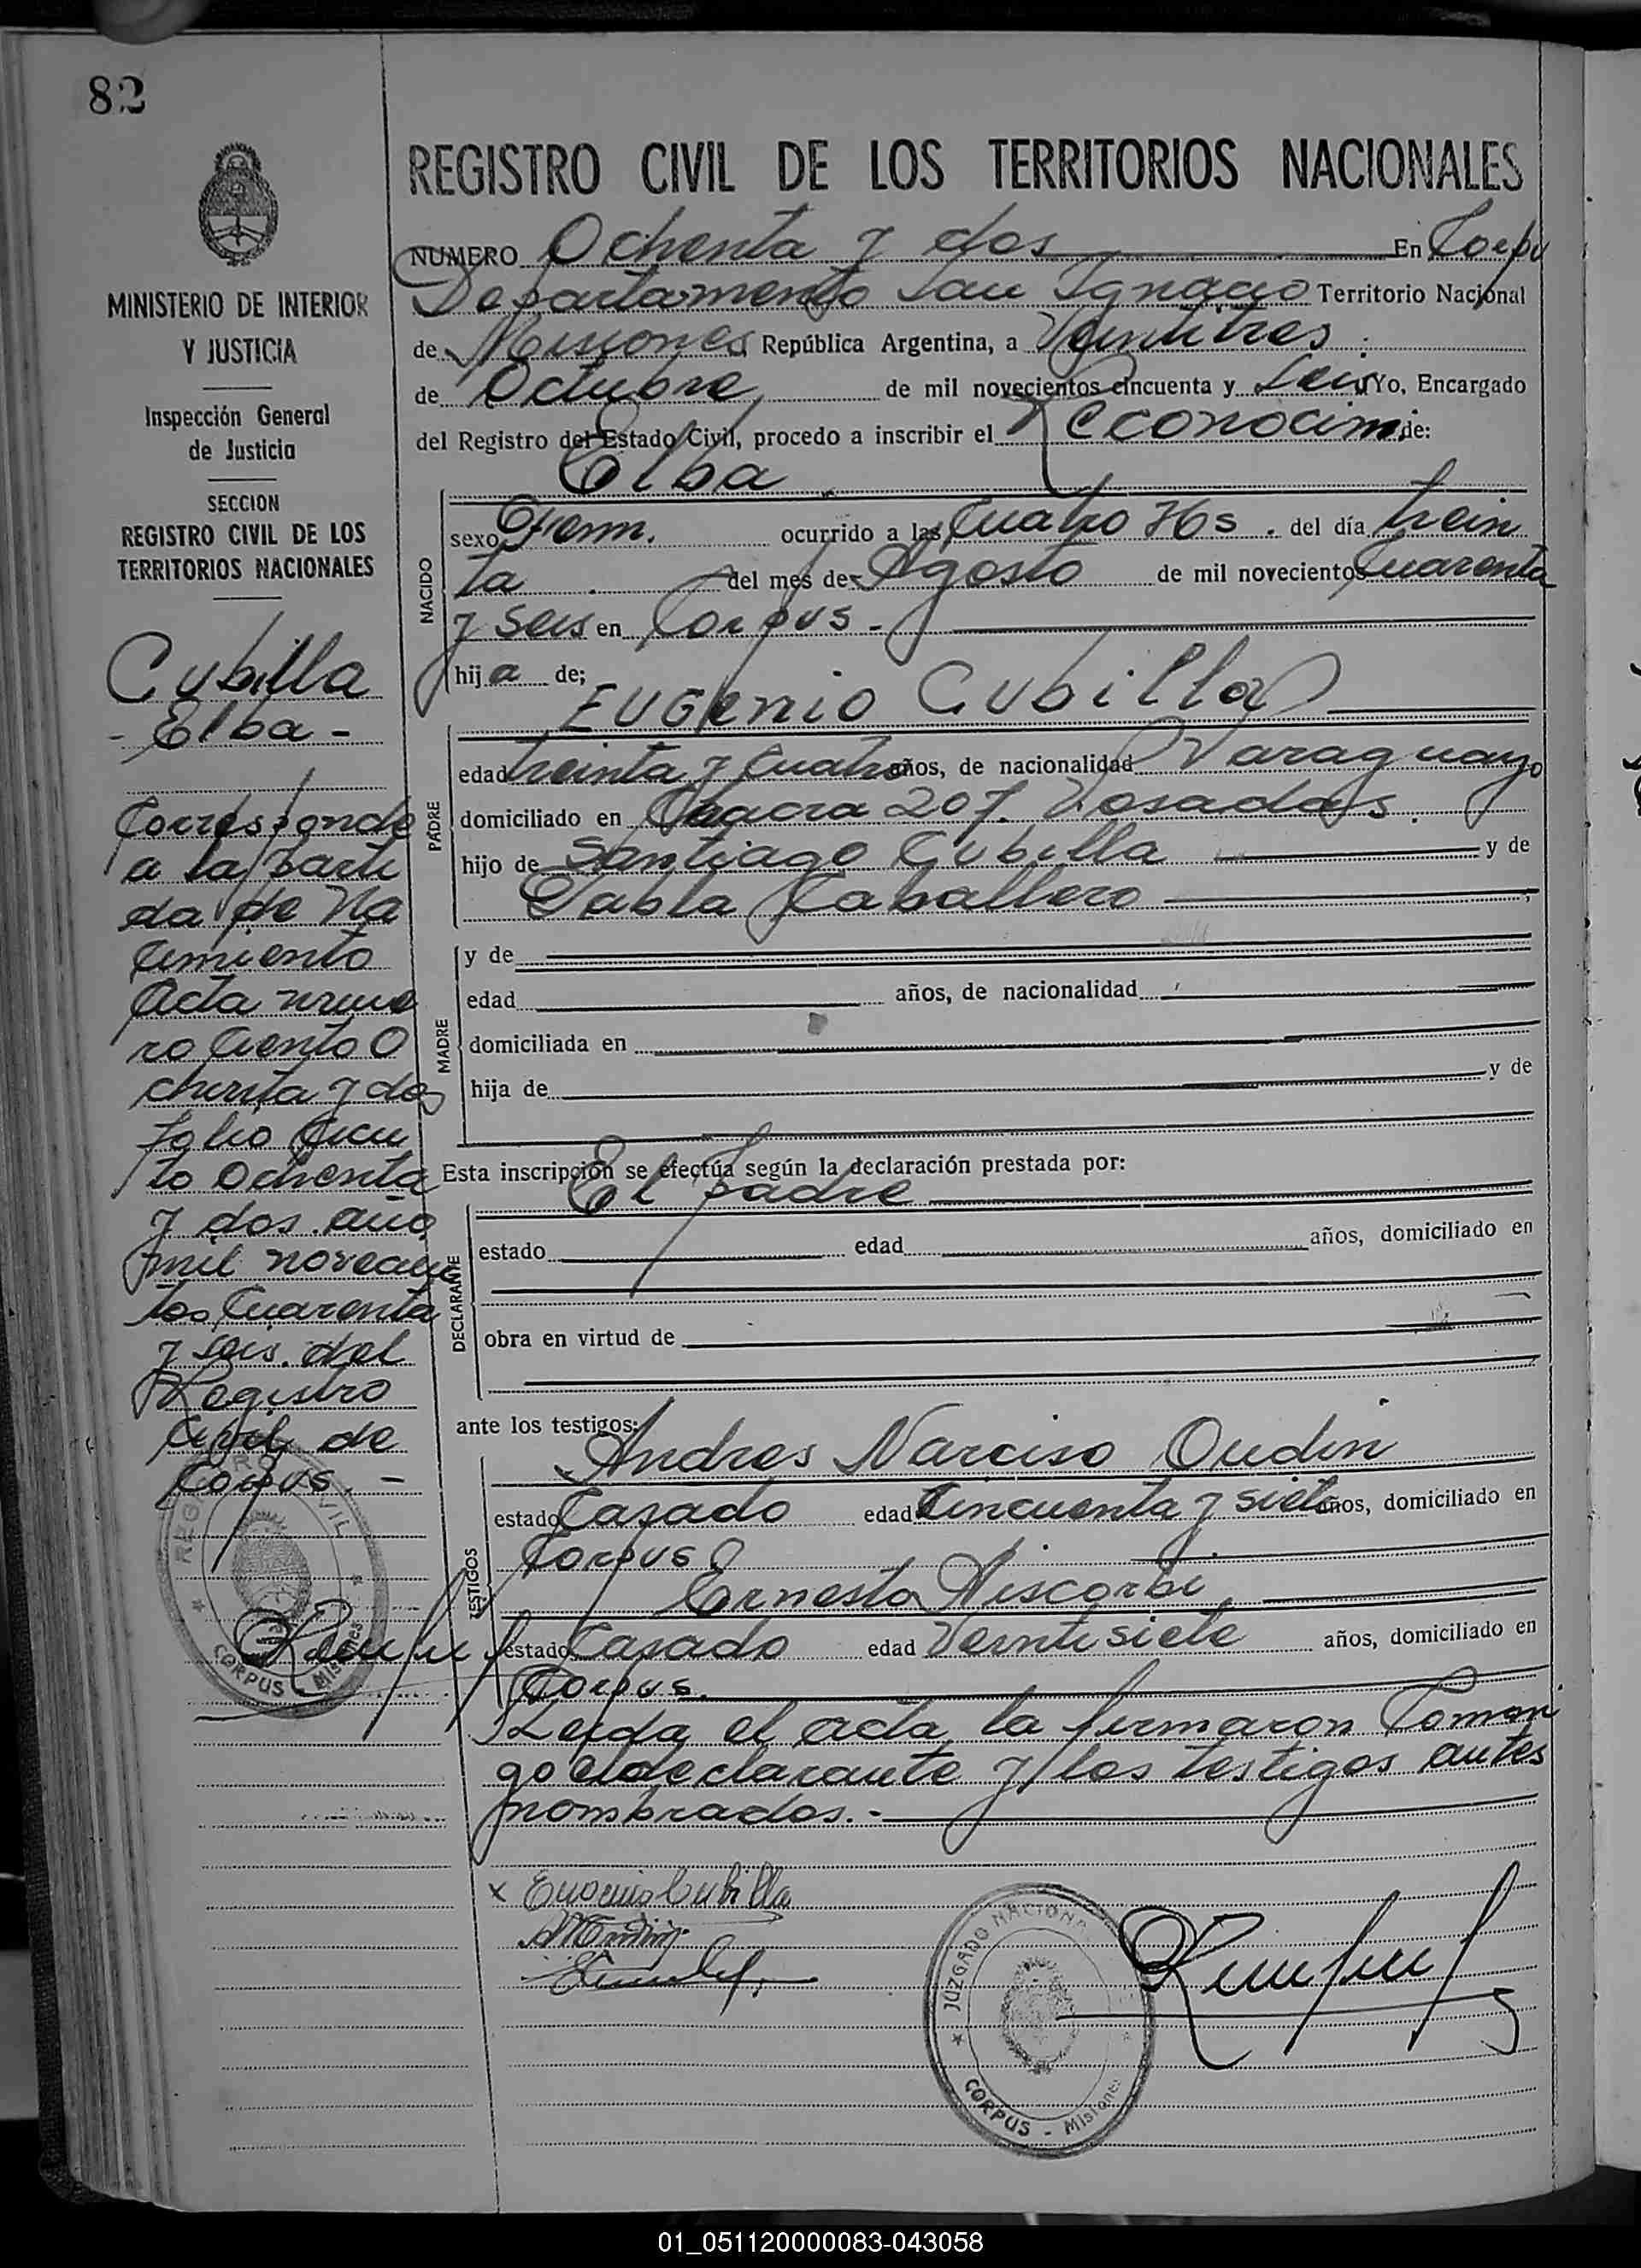 82
MINISTERIO DE INTERIOR
Y JUSTICIA
Inspección General
de Justicia
SECCION
REGISTRO CIVIL DE LOS
TERRITORIOS NACIONALES
Cubilla
- Elba -
Corresponde
a la Parti
da de Na
cimiento
Acta nume
ro Ciento O
chenta y dos
Folio Cien
to Ochenta
y dos. año
mil novecien
tos Cuarenta
y seis. del
Registro
Civil de
Corpus. -
REGISTRO CIVIL
CORPUS - Misiones
REGISTRO CIVIL DE LOS TERRITORIOS NACIONALES
NUMERO Ochenta y dos En Corpu
Departamento San Ignacio Territorio Nacional
de Misiones República Argentina, a Veintitres
de Octubre de mil novecientos cincuenta y Seis Yo, Encargado
del Registro del Estado Civil, procedo a inscribir el Reconocim de:
Elba
NACIDO
sexo Fem. ocurrido a las Cuatro Hs. del día trein
ta del mes de Agosto de mil novecientos Cuarenta
y seis en Corpus -
hija de;
EUGENIO Cubilla
PADRE
edad treinta y Cuatro años, de nacionalidad Paraguayo
domiciliado en Chacra 207. Posadas.
hijo de Santiago Cubilla y de
Pabla Caballero
MADRE
y de
edad años, de nacionalidad
domiciliada en
hija de y de
Esta inscripción se efectúa según la declaración prestada por:
El padre
DECLARANTE
estado edad años, domiciliado en
obra en virtud de
ante los testigos:
Andres Narciso Oudin
TESTIGOS
estado Casado edad Cincuenta y siete años, domiciliado en
Corpus
Ernesto
estado Casado edad Veintisiete años, domiciliado en
Corpus.
Leida el acta la firmaron Conmi
go el declarante y los testigos antes
nombrados. -
x Eugenio Cubilla
JUZGADO NACIONA
CORPUS - Misiones
01_051120000083-043058